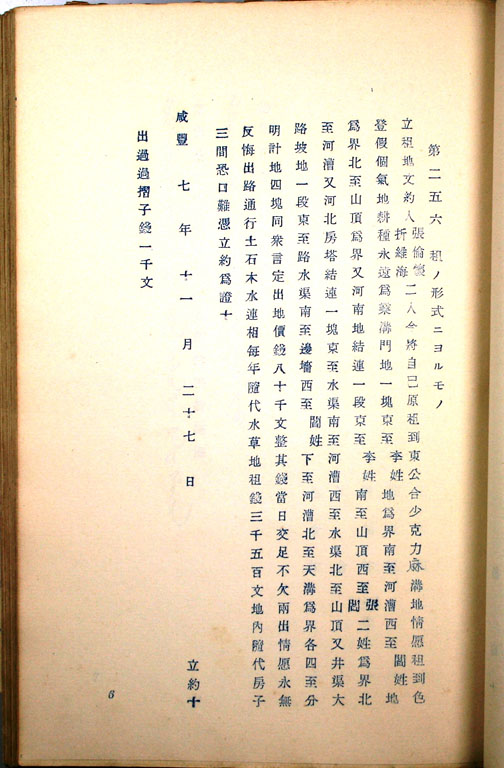 第二五六 租ノ形式ニヨルモノ
立租地文約人 張倫 折維海 二人今將自己原租到東公合少克力溝地情愿租到色
登假個氣地耕種永遠爲 溝門地一塊東至 李姓 地爲界南至河漕西至 閻姓 地
爲界北至山頂爲界又河南地結連一段東至 李姓 南至山頂西至 張 閻 二姓爲界北
至河漕又河北房塔結連一塊東至水渠南至河漕西至水渠北至山頂又井渠大
路坡地一段東至路水渠南至邊墻西至 閻姓 下至河漕北至天溝爲界各四至分
明計地四塊同衆言定出地價錢八十千文整其錢當日交足不欠兩出情愿永無
反悔出路通行土石木水連相每年隨代水草地租錢三千五百文地內隨代房子
三間恐口難憑立約爲證十
咸豐 七年 十一月 二十七日 立約十
出過過摺子錢一千文
6